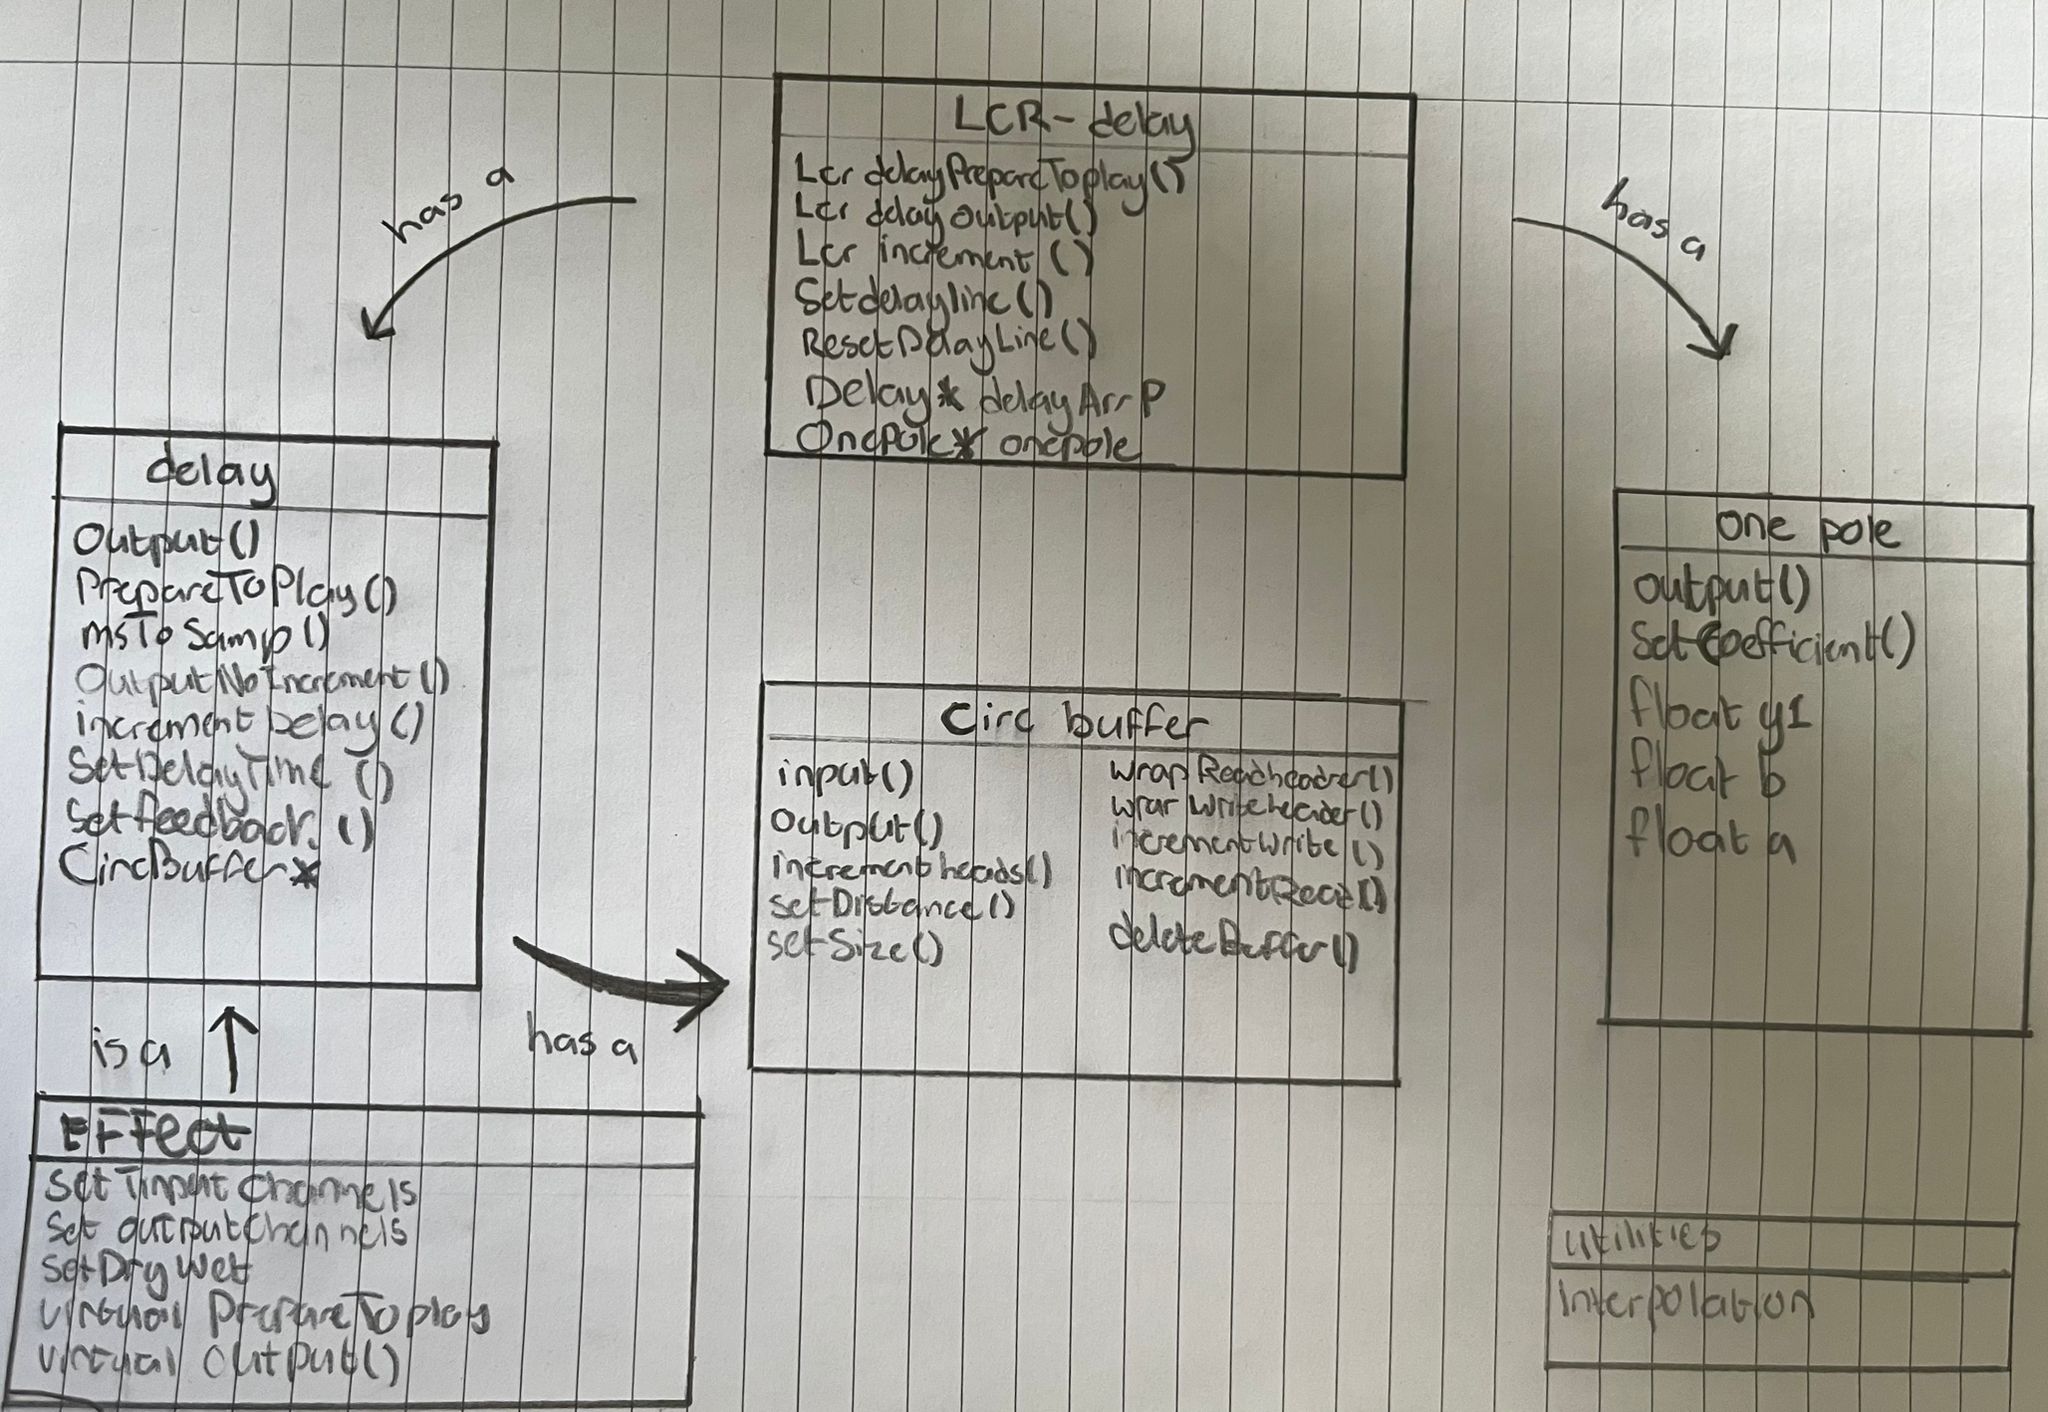 LCR-delay
Lcr delayPrepareToplay()
Lcr delayoutput()
Lcr increment ()
Setdelayline()
ResetDelayLine()
Delay* delayArrP
OnePole* onepole
has a
has a
delay
Output()
PrepareToPlay()
msToSamp()
OutputNoIncrement()
incrementDelay()
SetDelayTime ()
Setfeedback ()
CircBuffer*
one pole
output()
SetCoefficient()
float y1
float b
float a
Circ buffer
input()
Output()
increment heads()
setDistance()
setSize()
wrapReadheader()
wrar Writeheader()
incrementWrite ()
incrementRead()
deleteBuffer()
is a
has a
Effect
Set InputChannels
Set outputChannels
SetDryWet
virtual PrepareToplay
virtual output()
utilities
interpolation